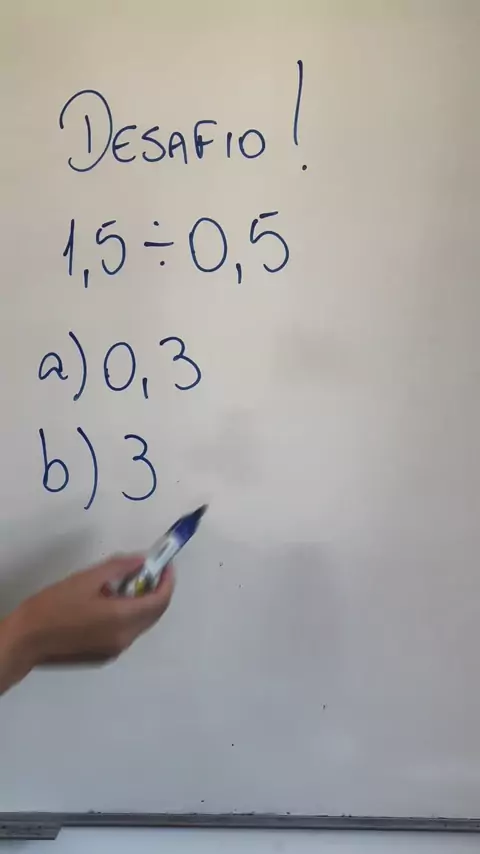 DESAFIO!
1,5÷0,5
a) 0,3
b) 3